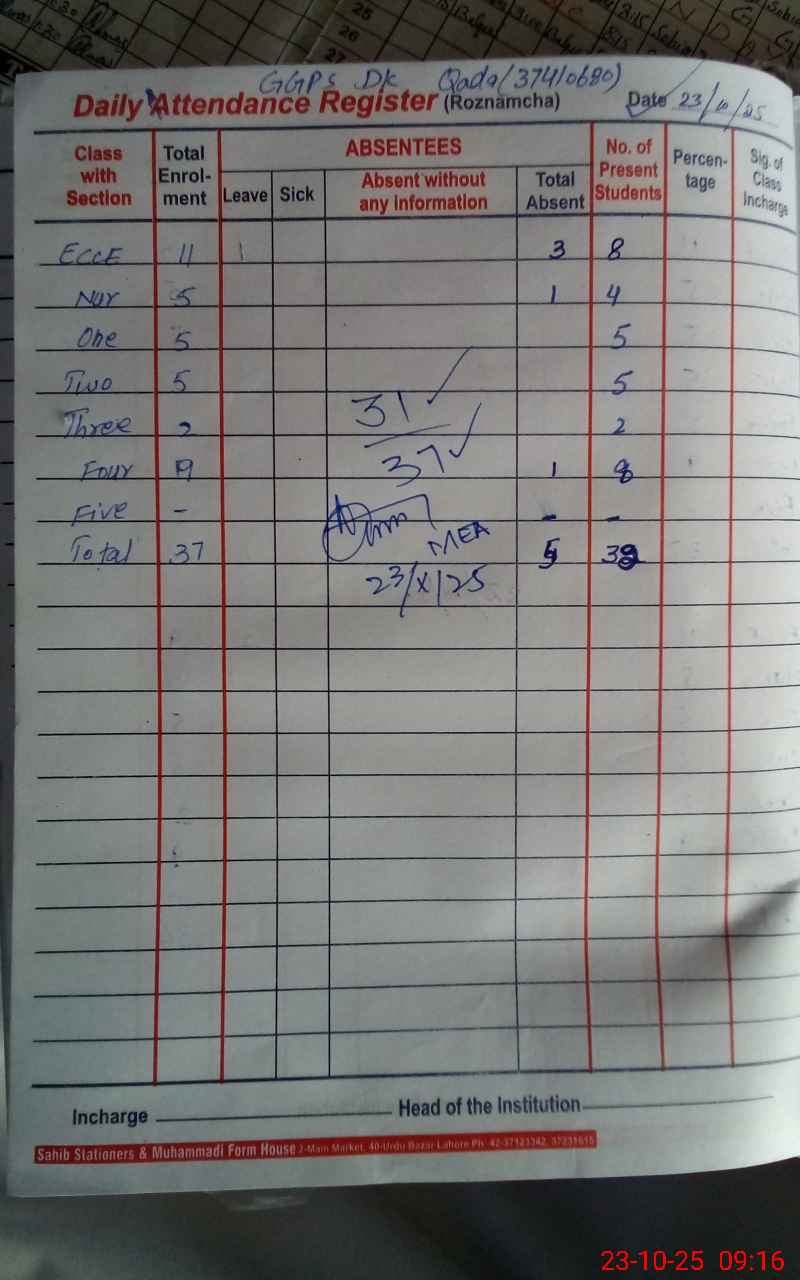 25
26
27
GGPS Dk Qada (37410680)
Daily Attendance Register (Roznamcha) Date 23/10/25
Class with Section Total Enrol-ment ABSENTEES Leave Sick Absent without any information Total Absent No. of Present Students Percen-tage Sig. of Class Incharge
ECCE 11 1 3 8
Nur 5 1 4
One 5 5
Two 5 5
Three 2 2
31
Four 9 1 8
37
Five - - -
MEA
Total 37 5 32
23/X/25
Incharge Head of the Institution
Sahib Stationers & Muhammadi Form House 2-Main Market, 40-Urdu Bazar Lahore Ph: 42-37123342, 37231615
23-10-25 09:16